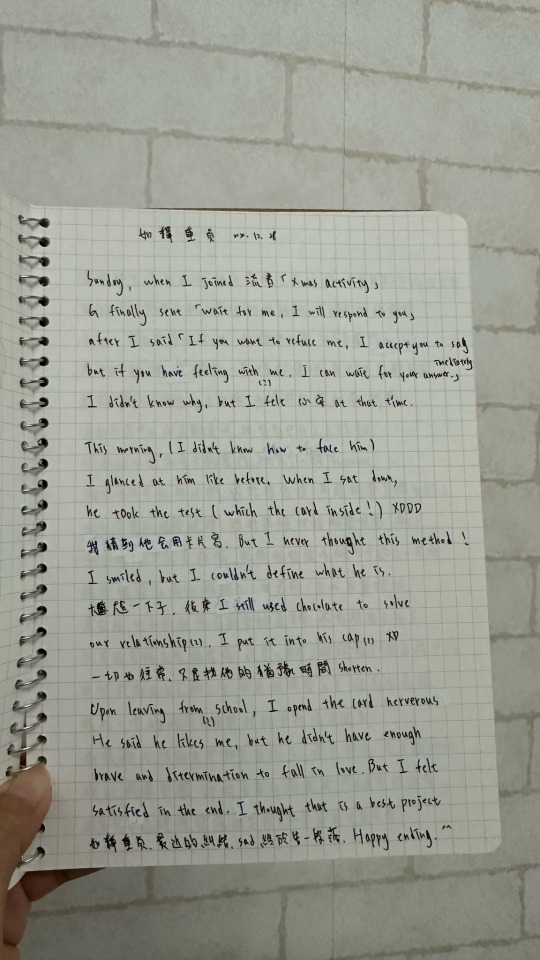 如釋重負 xx.12.28
Sunday, when I joined 流音「Xmas activity」
G finally sent 「Wait for me, I will respond to you」
after I said「If you want to refuse me, I accept you to say
but if you have feeling with me, I can wait for your answer.」
(?)
I didn't know why, but I felt 心安 at that time.
This morning, (I didn't know how to face him)
I glanced at him like before. When I sat down,
he took the test (which the card inside!) XDDD
我猜到他會用卡片寫. But I never thought this method!
I smiled, but I couldn't define what he is.
尷尬一下子. 後來 I still used chocolate to solve
our relationship(?). I put it into his cap(?) XD
一切如往常, 只是我倆的猶豫時間 shorten.
Upon leaving from school, I opend the card nerverous
(?)
He said he likes me, but he didn't have enough
brave and ditermination to fall in love. But I felt
satisfied in the end. I thought that is a best project
如釋重負. 最近的糾結, sad 終於告一段落. Happy ending. ^^